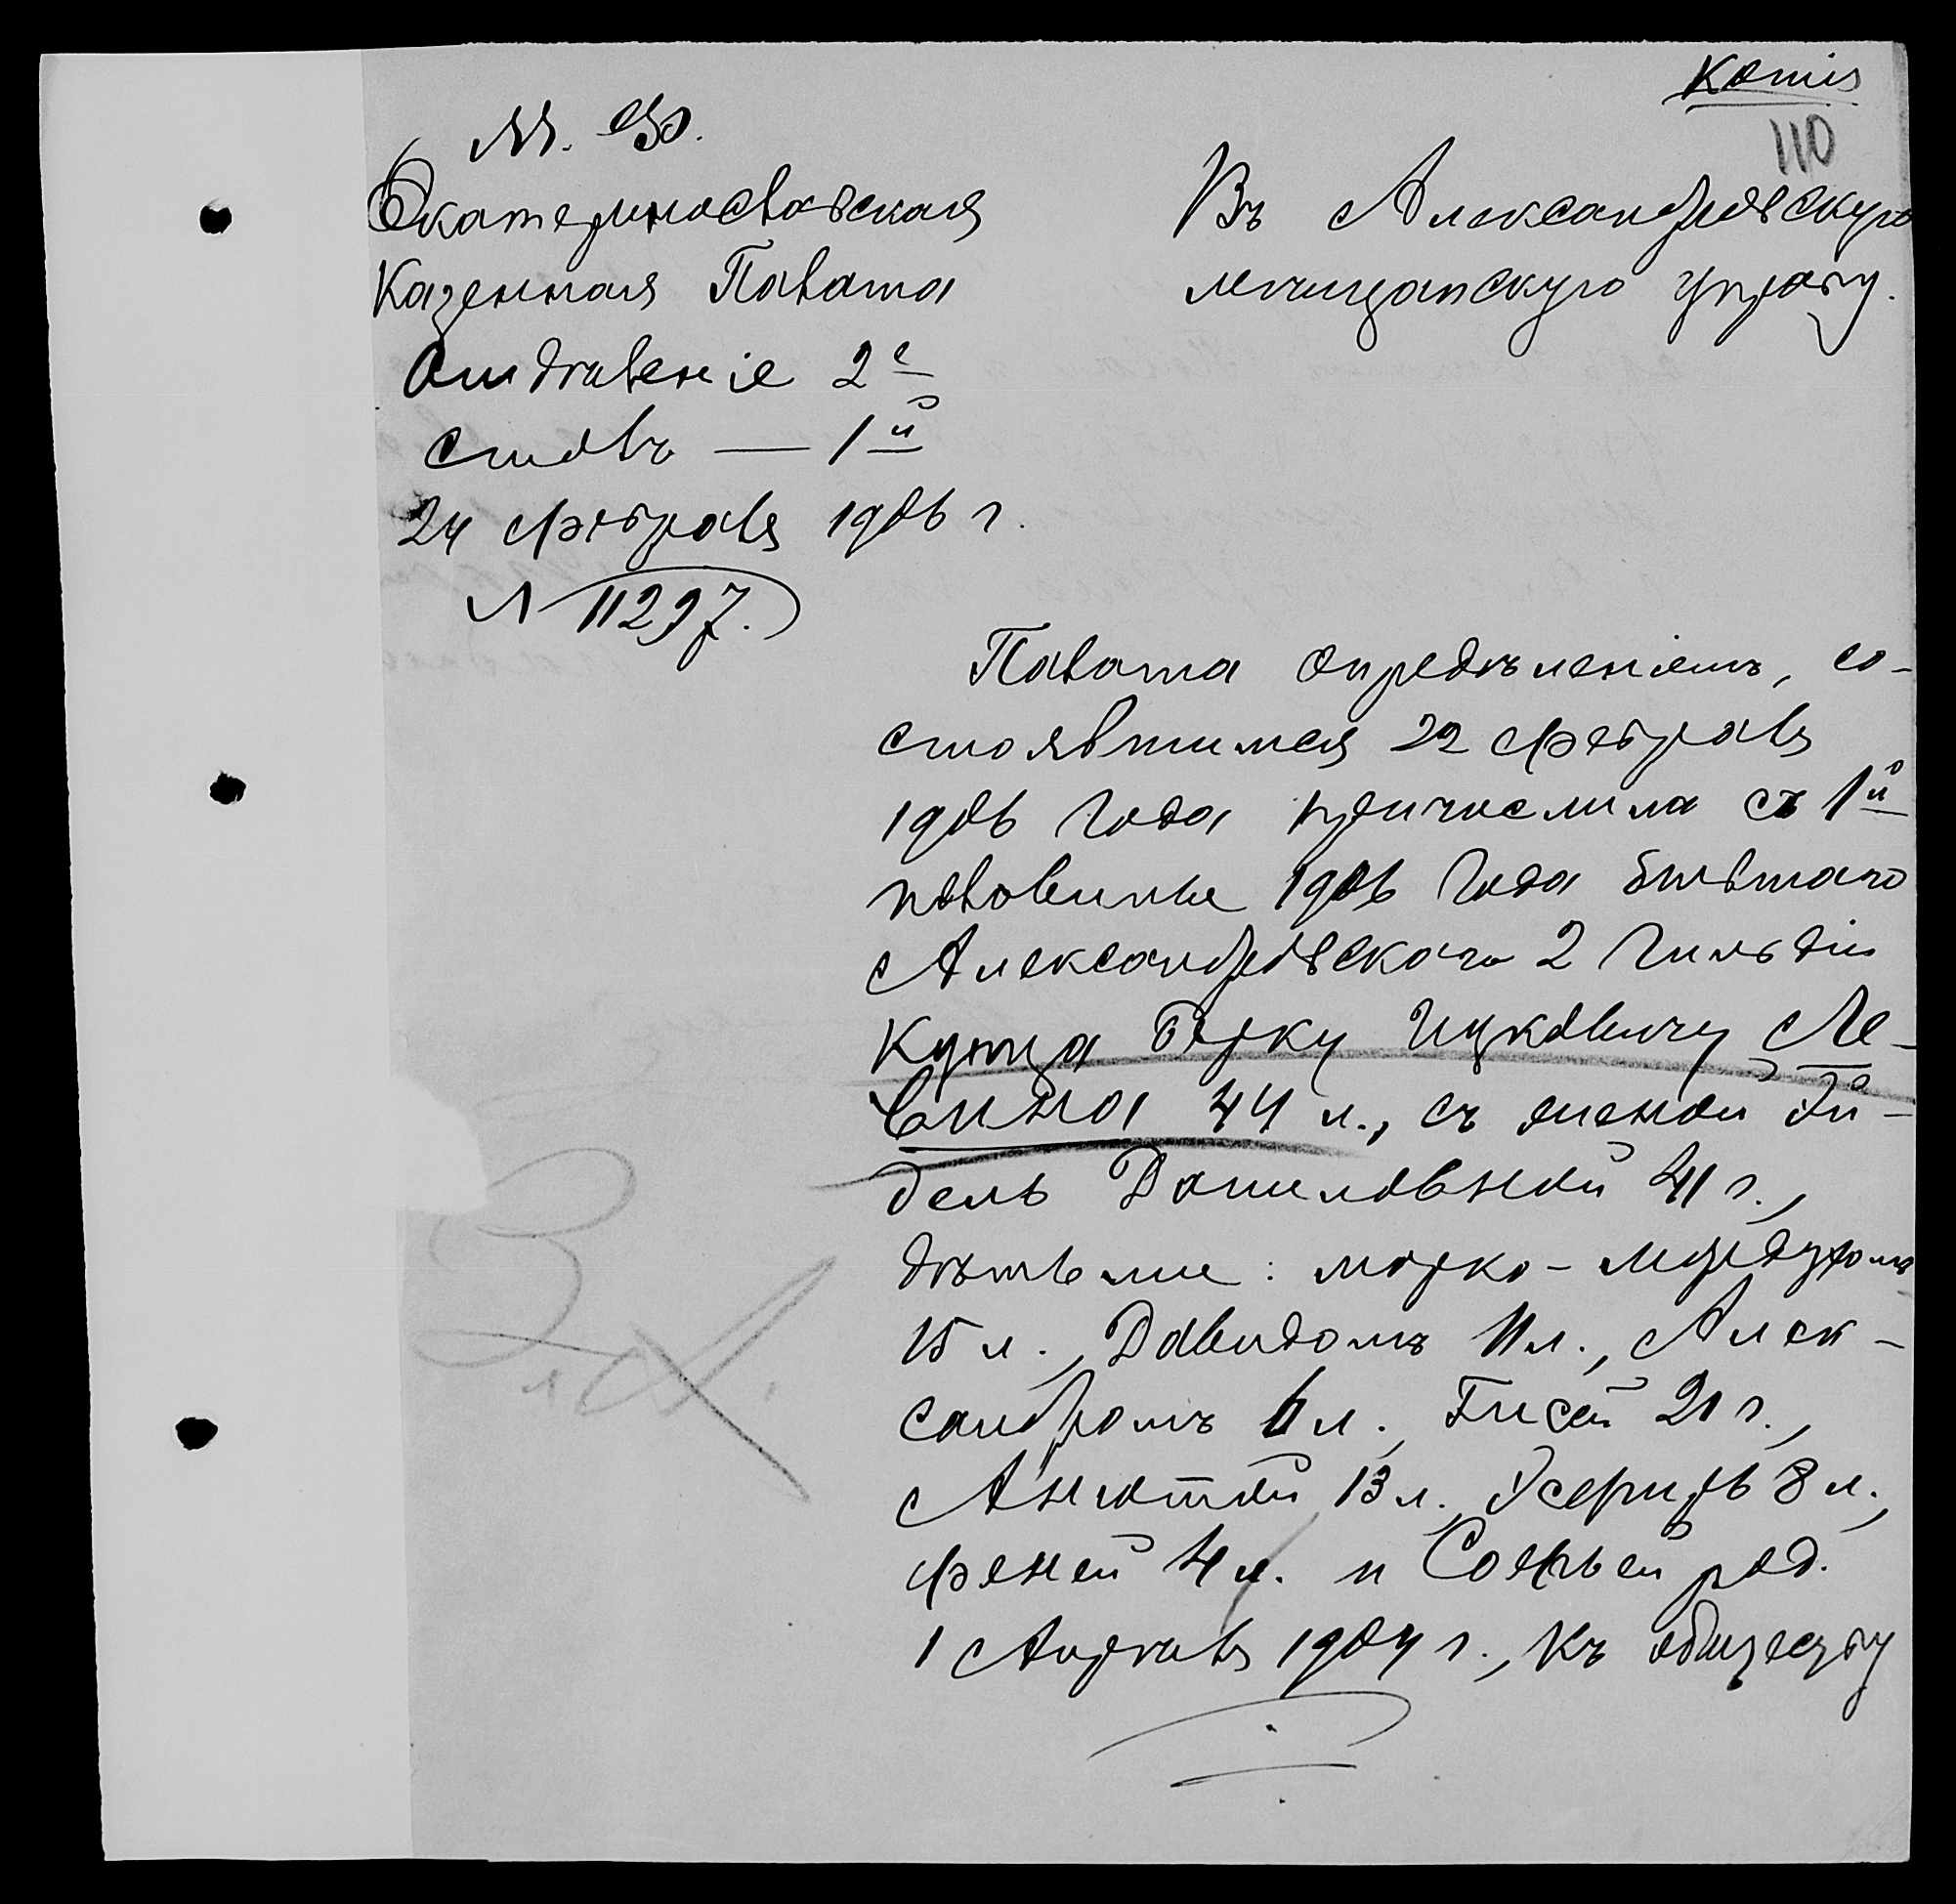 Копія
110
М. Ф.
Екатеринославская
Казенная Палата
Отдѣленіе 2е
столъ — 1й
24 Февраля 1906 г.
№ 11297.
Въ Александровскую
мещанскую управу.
Палата опредѣленіемъ, со-
стоявшимся 22 Февраля
1906 года причислила съ 1й
половины 1906 года бывшаго
Александровскаго 2 гильдіи
купца Берку Ицковичу Ле-
вина 44 л., съ женой Ги-
дель Даниловной 41 г.,
дѣтьми: Морко-Мордухомъ
15 л., Давидомъ 11 л., Алек-
сандромъ 6 л., Гисей 21 г.,
Анютой 13 л., Эсфирь 8 л.,
Феней 4 л. и Софьей род.
1 Апрѣля 1904 г., къ обществу